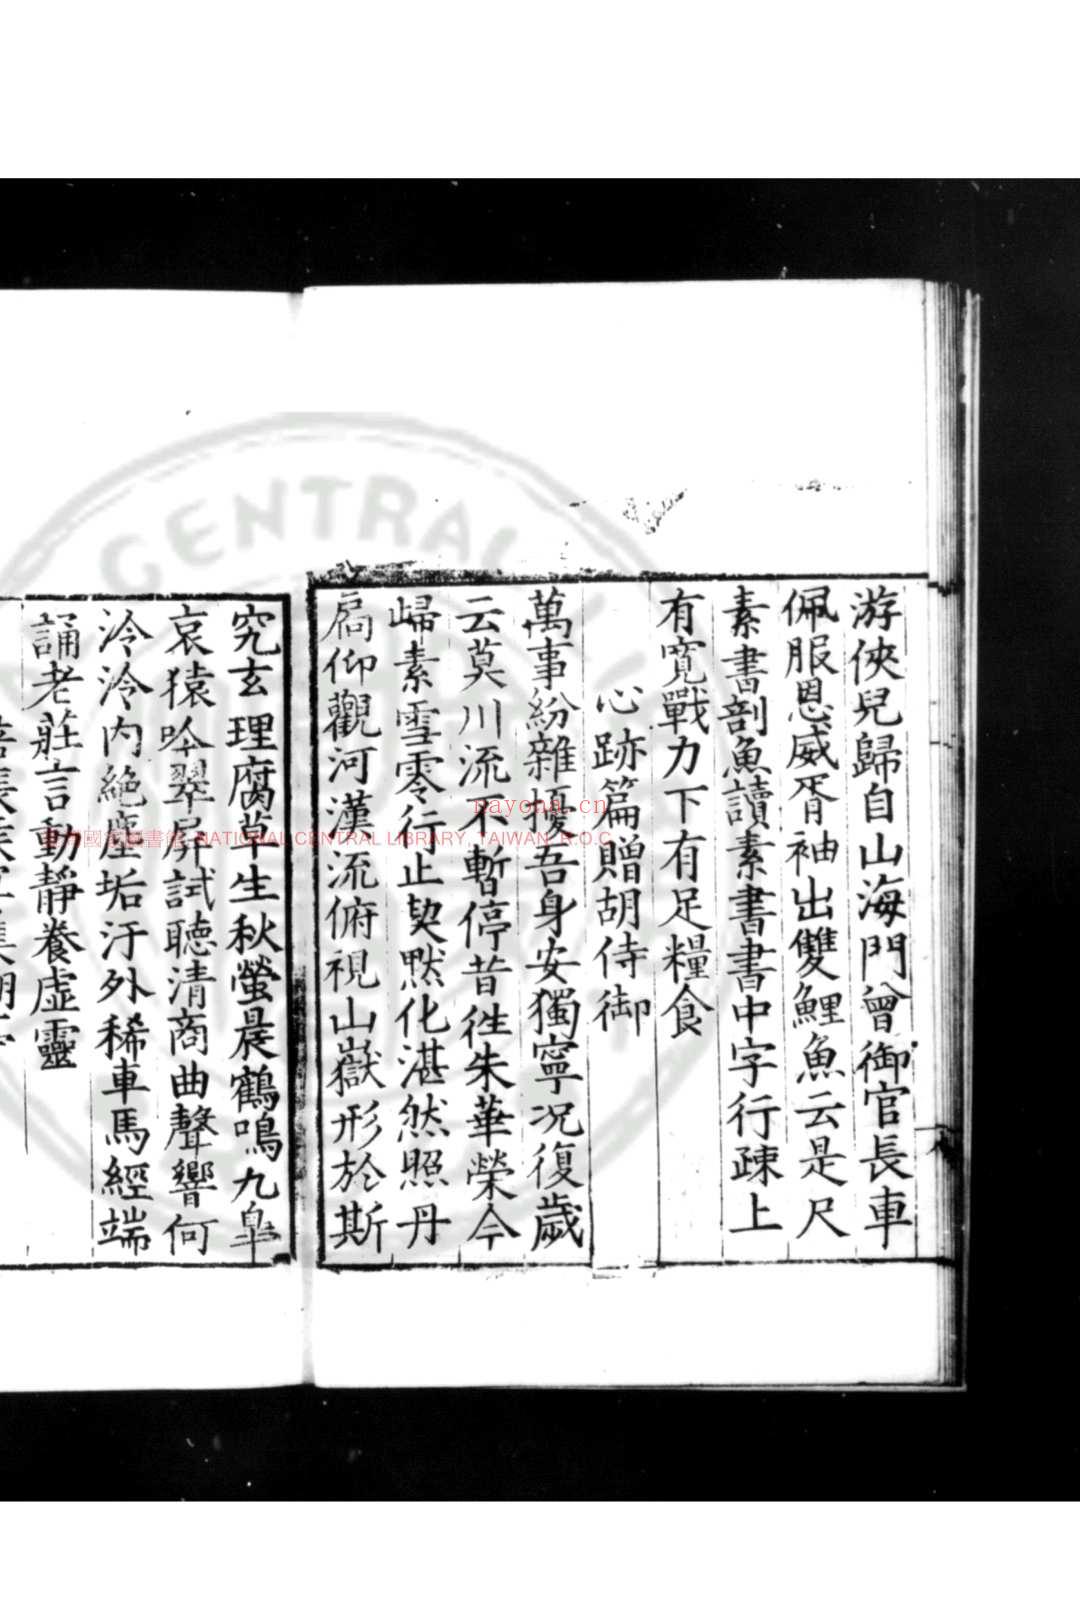 游俠兒歸自山海門曾御官長車
佩服恩威胥袖出雙鯉魚云是尺
素書剖魚讀素書書中字行疎上
有寬戰力下有足糧食
心跡篇贈胡侍御
萬事紛雜擾吾身安獨寧况復歲
云莫川流不暫停昔徃朱華榮今
歸素雪零行止契默化湛然照丹
扃仰觀河漢流俯視山嶽形於斯
究玄理腐草生秋螢晨鶴鳴九臯
哀猿吟翠屏試聽清商曲聲響何
泠泠内絶塵垢汙外稀車馬經端
誦老莊言動靜養虛靈
nayona.cn
國家圖書館 NATIONAL CENTRAL LIBRARY, TAIWAN, R.O.C.
CENTRAL